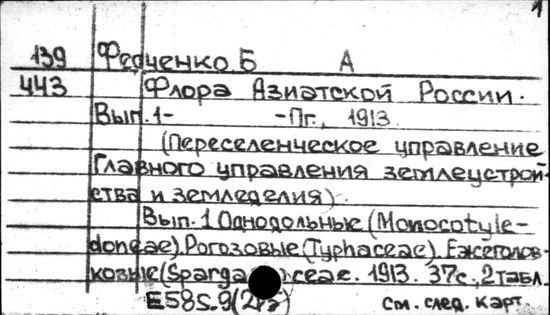 1
139 Федченко, Б А
443 Флора Азиатской России.
Вып. 1- -Пг., 1913.
(Переселенческое управление
Главного управления землеустрой-
ства и земледелия).
Вып. 1 Однодольные (Monocotyle-
doneae). Рогозовые (Typhaceae). Ежеголов-
ковые (Sparga ceae. 1913. 37с., 2 табл.
E58s.9(2
см. след. карт.